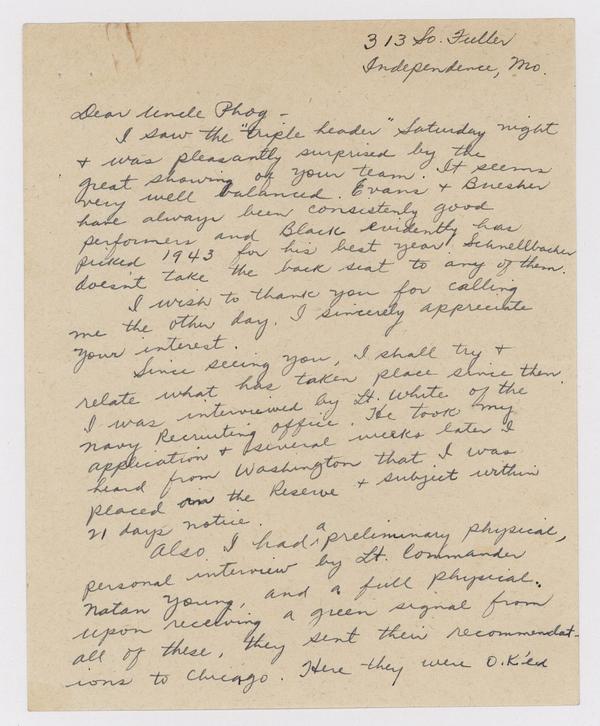 313 So. Fuller
Independence, Mo.
Dear Uncle Phog -
I saw the "triple header" Saturday night
+ was pleasantly surprised by the
great showing of your team. It seems
very well balanced. Evans + Buesher
have always been consistenly good
performers and Black evidently has
picked 1943 for his best year. Schnellbacher
doesn't take the back seat to any of them.
I wish to thank you for calling
me the other day. I sincerely appreciate
your interest.
Since seeing you, I shall try +
relate what has taken place since then.
I was interviewed by Lt. White of the
Navy Recruiting office. He took my
application + several weeks later I
heard from Washington that I was
placed on the Reserve + subject within
21 days notice.
Also I had a preliminary physical,
personal interview by Lt. Commander
Natan Young, and a full physical.
Upon receiving a green signal from
all of these, they sent their recommendat-
ions to Chicago. Here they were O.K'ed